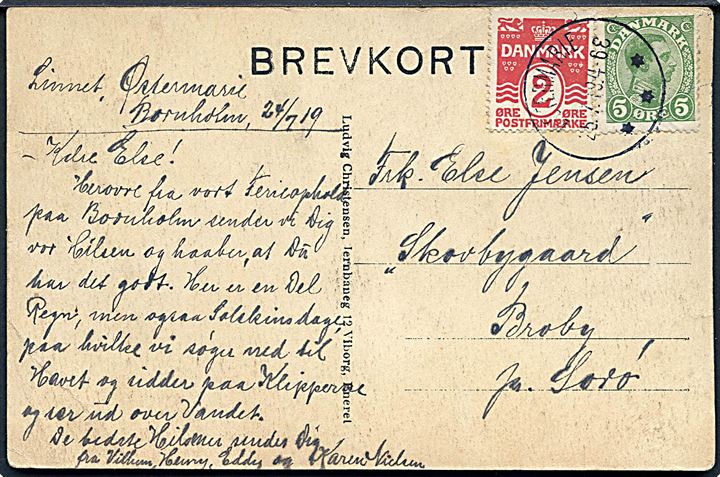 BREVKORT
Linnet, Østermarie
Bornholm, 24/7 19
- Kære Else!
Herovre fra vort Ferieophold
paa Bornholm sender vi Dig
vor Hilsen og haaber, at Du
har det godt. Her er en Del
Regn, men ogsaa Solskinsdage,
paa hvilke vi søger ned til
Havet og sidder paa Klipperne
og ser ud over Vandet.
De bedste Hilsener sendes Dig
fra Vilhem, Henry, Eddy og Karen Nielsen
Ludvig Christensen, Jernbaneg 12 Viborg, Eneret
DANMARK
2
ØRE ØRE
POSTFRIMÆRKE
DANMARK
5 ØRE 5
Frk. Else Jensen
"Skovbygaard"
Broby
pr. Sorø